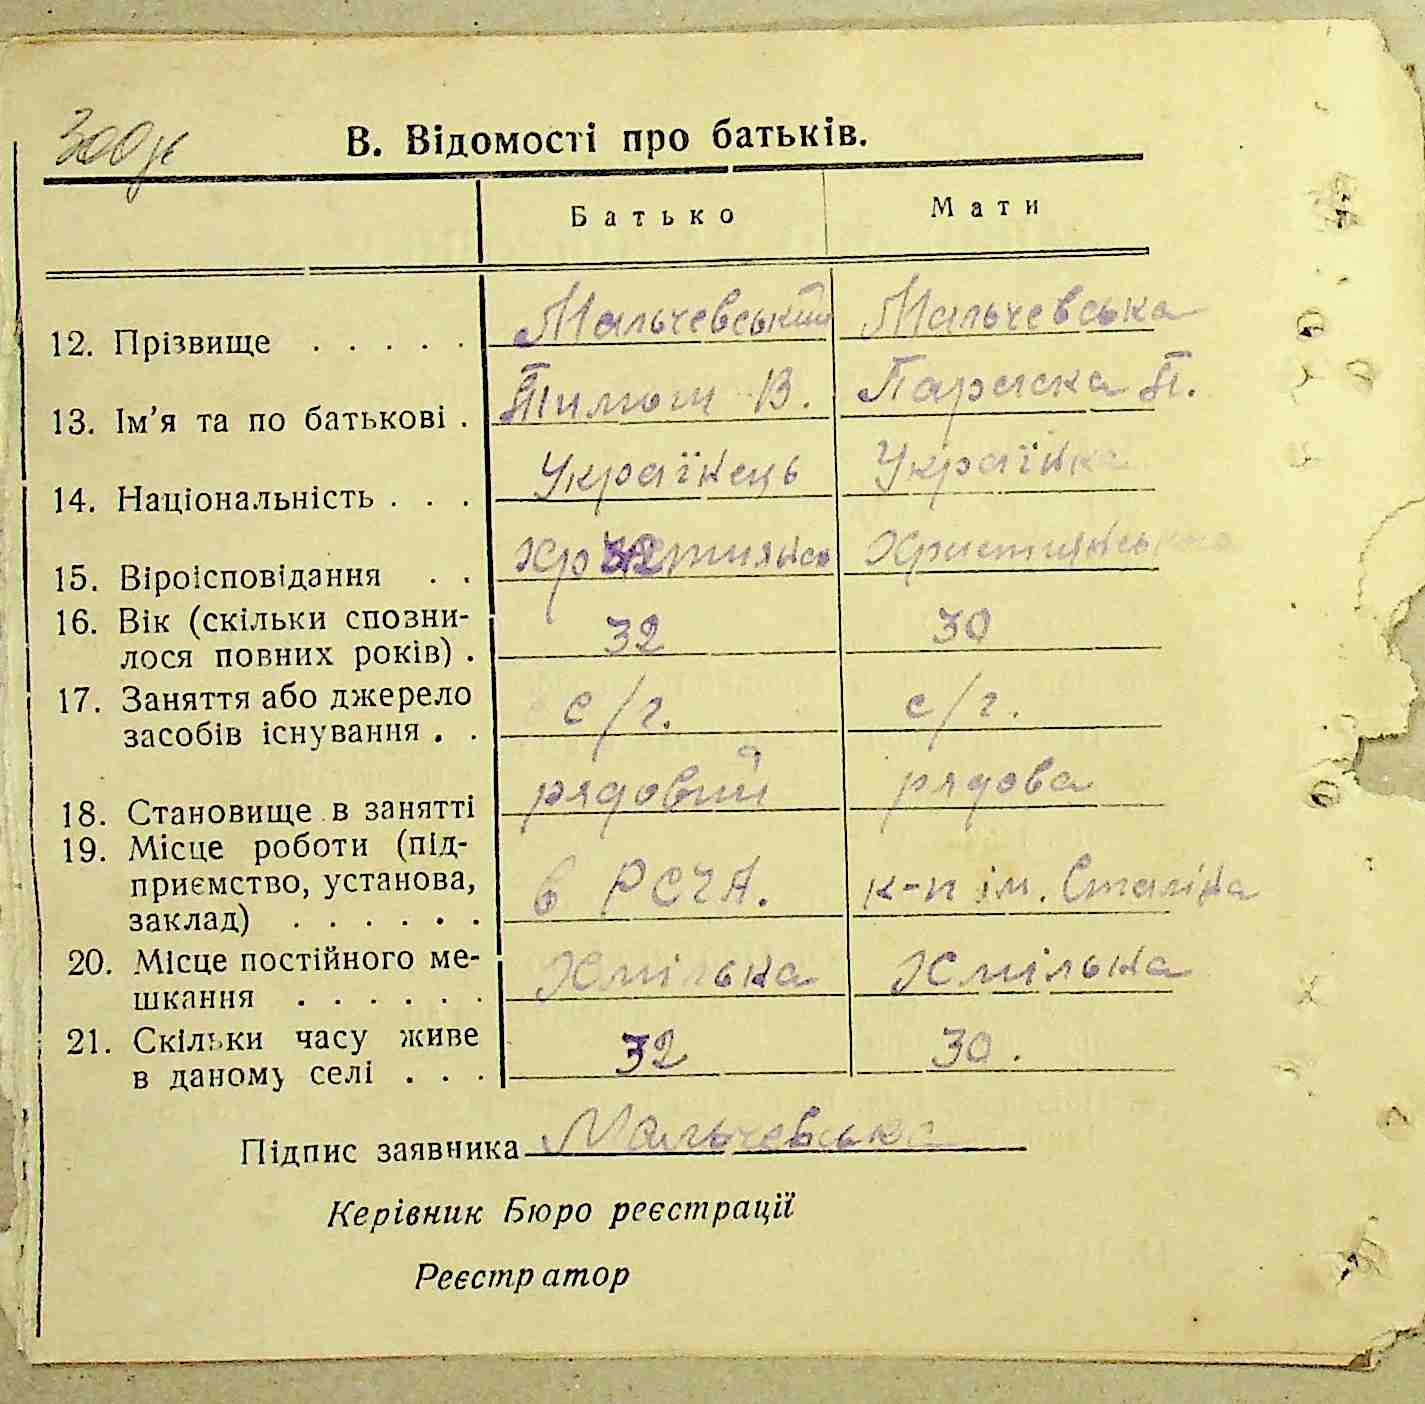 В. Відомості про батьків.
Батько Мати
12. Прізвище . . . . . Мальчевський Мальчевська
13. Ім'я та по батькові . Тимош В. Параска П.
14. Національність . . . Українець Українка
15. Віроісповідання . . Християнсь Християнська
16. Вік (скільки спозни-
лося повних років) . 32 30
17. Заняття або джерело
засобів існування . . с/г. с/г.
18. Становище в занятті рядовий рядова
19. Місце роботи (під-
приємство, установа,
заклад) . . . . . . в РСЧА. к-п ім. Сталіна
20. Місце постійного ме-
шкання . . . . . . Хмілька Хмілька
21. Скільки часу живе
в даному селі . . . 32 30.
Підпис заявника Мальчевська
Керівник Бюро реєстрації
Реєстратор